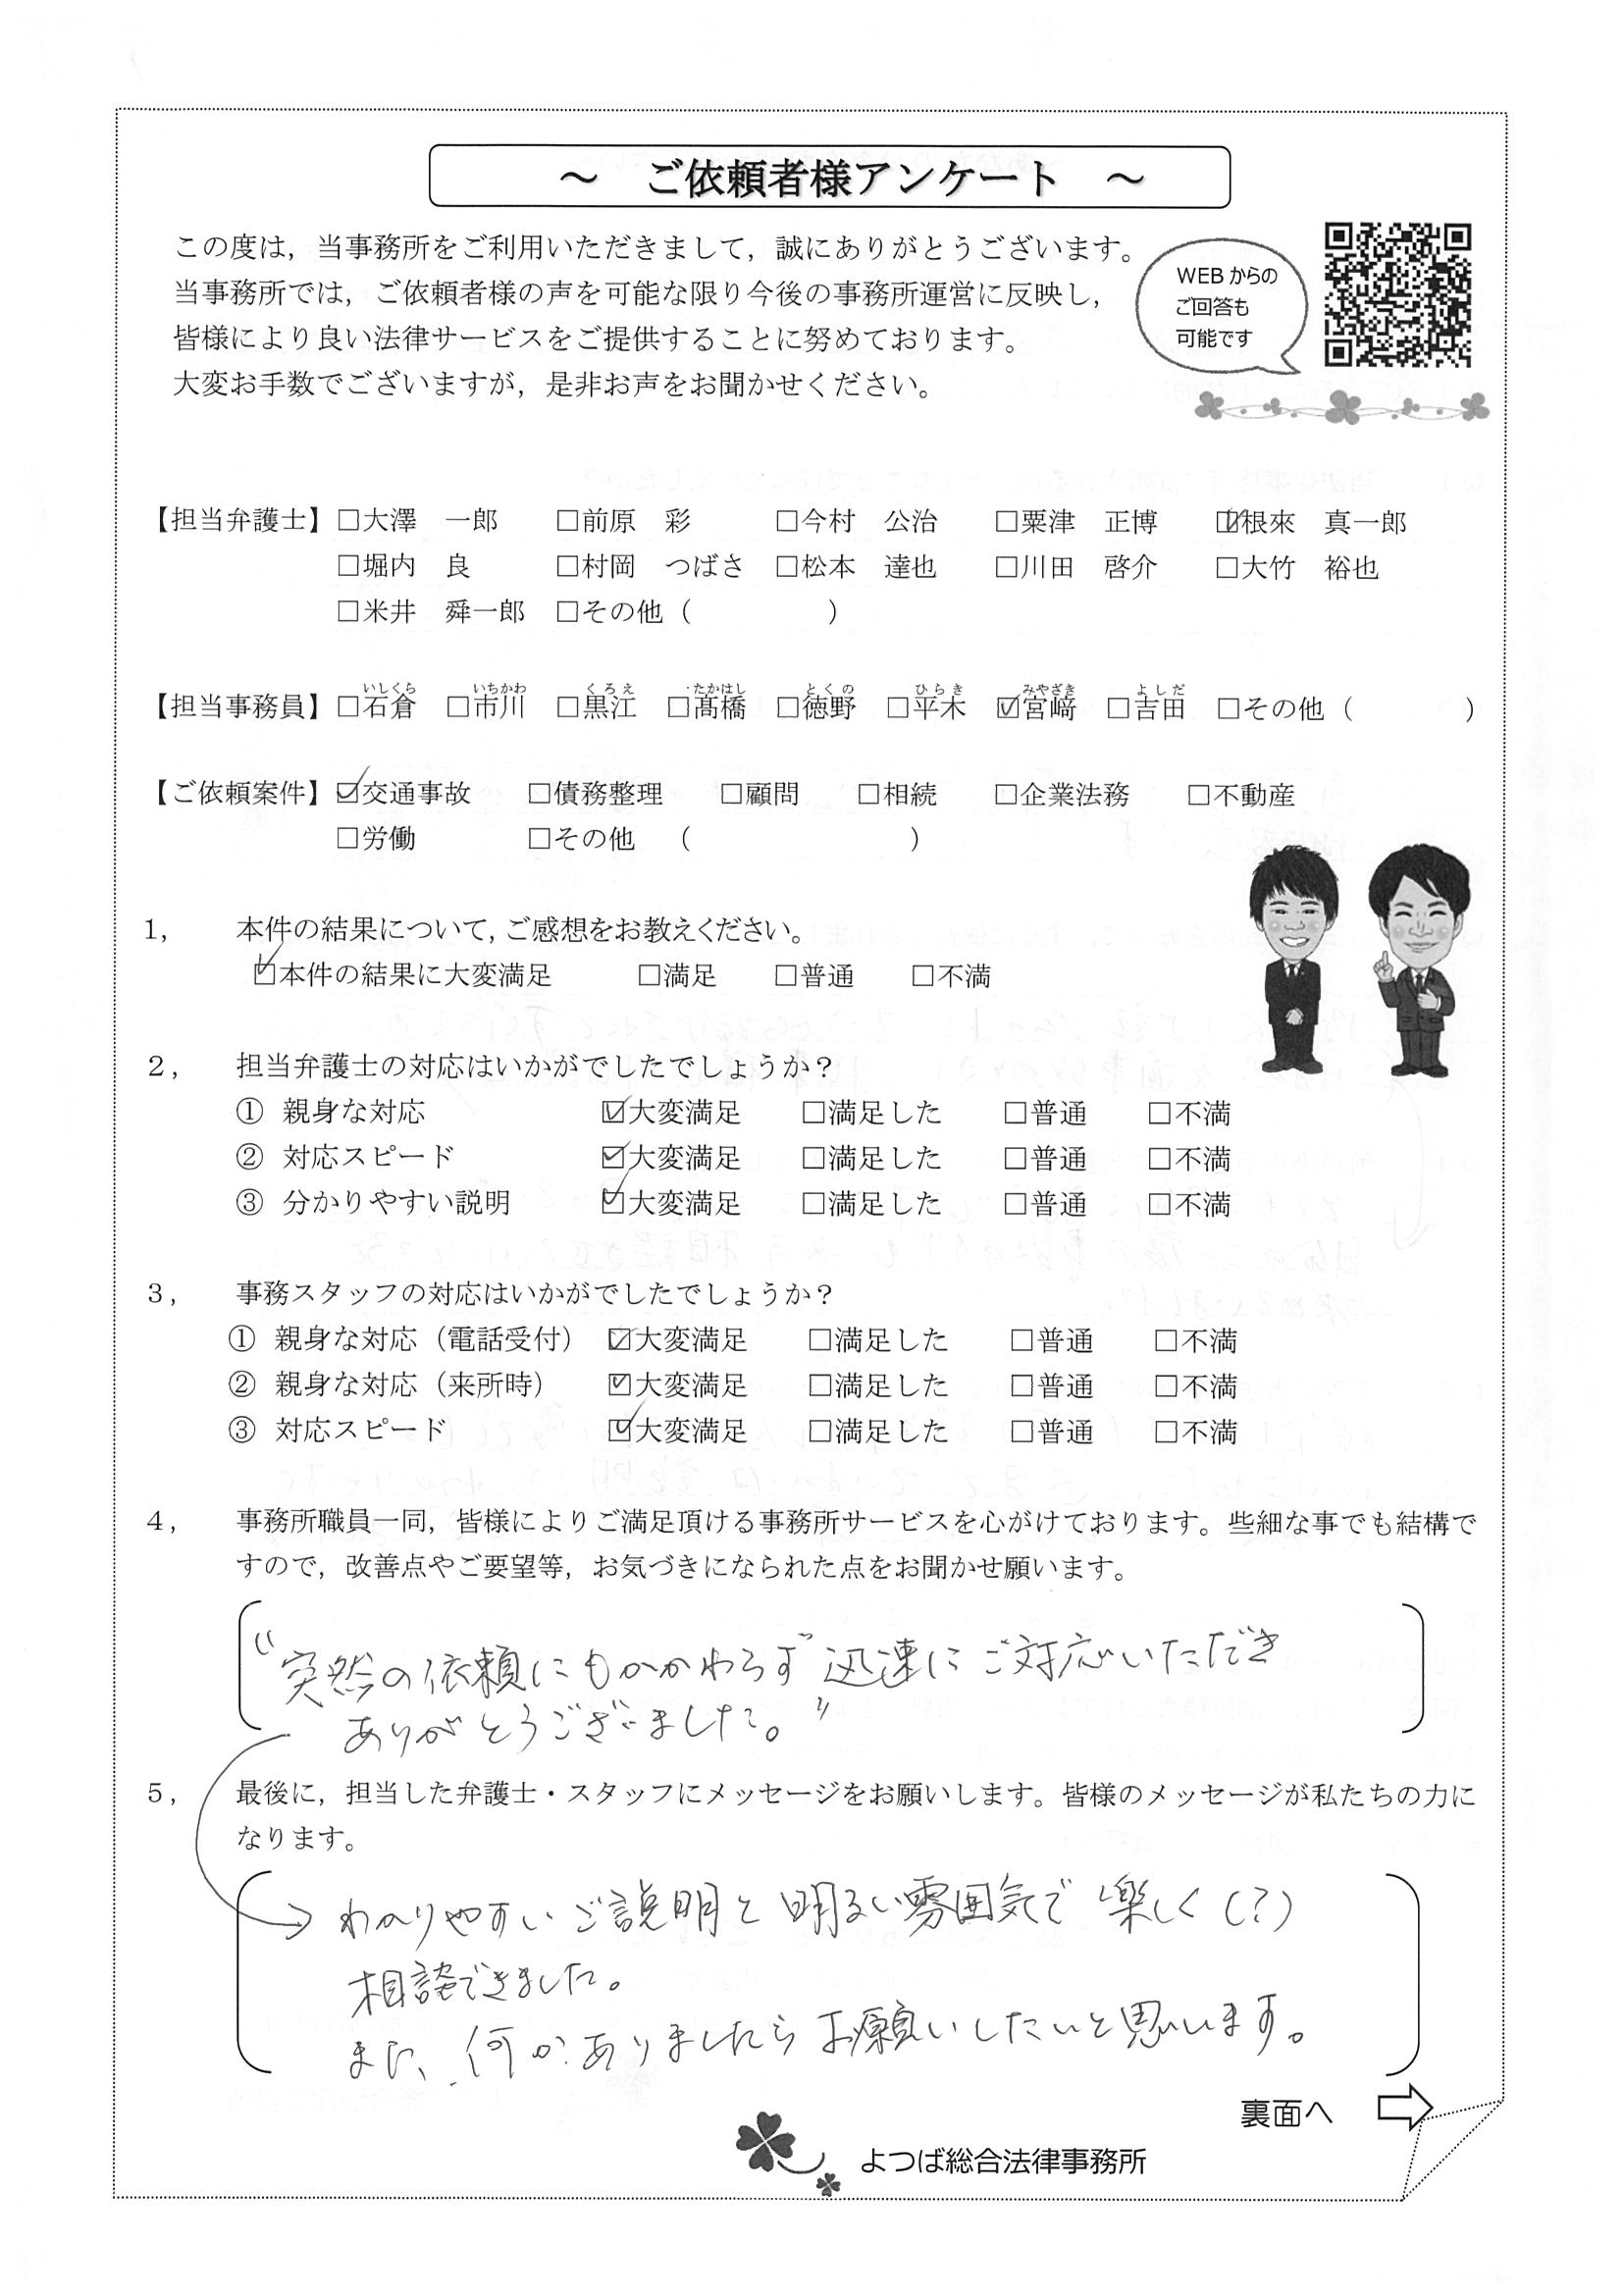 ～　ご依頼者様アンケート　～
この度は，当事務所をご利用いただきまして，誠にありがとうございます。
当事務所では，ご依頼者様の声を可能な限り今後の事務所運営に反映し，
皆様により良い法律サービスをご提供することに努めております。
大変お手数でございますが，是非お声をお聞かせください。
WEBからの
ご回答も
可能です
【担当弁護士】□大澤　一郎　□前原　彩　□今村　公治　□粟津　正博　☑根來　真一郎
□堀内　良　□村岡　つばさ　□松本　達也　□川田　啓介　□大竹　裕也
□米井　舜一郎　□その他（　　　　　）
いしくら　いちかわ　くろえ　たかはし　とくの　ひらき　みやざき　よしだ
【担当事務員】□石倉　□市川　□黒江　□髙橋　□徳野　□平木　☑宮﨑　□吉田　□その他（　　　　）
【ご依頼案件】☑交通事故　□債務整理　□顧問　□相続　□企業法務　□不動産
□労働　□その他　（　　　　　　　　）
1，　本件の結果について，ご感想をお教えください。
☑本件の結果に大変満足　□満足　□普通　□不満
2，　担当弁護士の対応はいかがでしたでしょうか？
① 親身な対応　☑大変満足　□満足した　□普通　□不満
② 対応スピード　☑大変満足　□満足した　□普通　□不満
③ 分かりやすい説明　☑大変満足　□満足した　□普通　□不満
3，　事務スタッフの対応はいかがでしたでしょうか？
① 親身な対応（電話受付）　☑大変満足　□満足した　□普通　□不満
② 親身な対応（来所時）　☑大変満足　□満足した　□普通　□不満
③ 対応スピード　☑大変満足　□満足した　□普通　□不満
4，　事務所職員一同，皆様によりご満足頂ける事務所サービスを心がけております。些細な事でも結構で
すので，改善点やご要望等，お気づきになられた点をお聞かせ願います。
“突然の依頼にもかかわらず”迅速にご対応いただき
ありがとうございました。”
5，　最後に，担当した弁護士・スタッフにメッセージをお願いします。皆様のメッセージが私たちの力に
なります。
→ わかりやすいご説明と明るい雰囲気で楽しく（？）
相談できました。
また、何かありましたらお願いしたいと思います。
裏面へ　⇨
よつば総合法律事務所